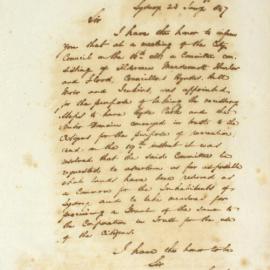 Sydney 23 Jany 1847
Sir
I have the honor to inform
you that at a meeting of the City
Council on the 16th ult a Committee con
sisting of Aldermen
and Flood, Councillors
and Jenkins, was appointed,
for the purpose of taking the necessary
steps to have Hyde Park and the
Domain conveyed in trust to the
Citizens for the purpose of recreation
and on the 19th instant it was
resolved that the said Committee be
requested to ascertain as far as possible
what lands have been reserved as
a Common for the Inhabitants of
Sydney and to take measures for
procuring a Grant of the same to
the Corporation in trust for the use
of the Citizens.
I have the honor to be
Sir